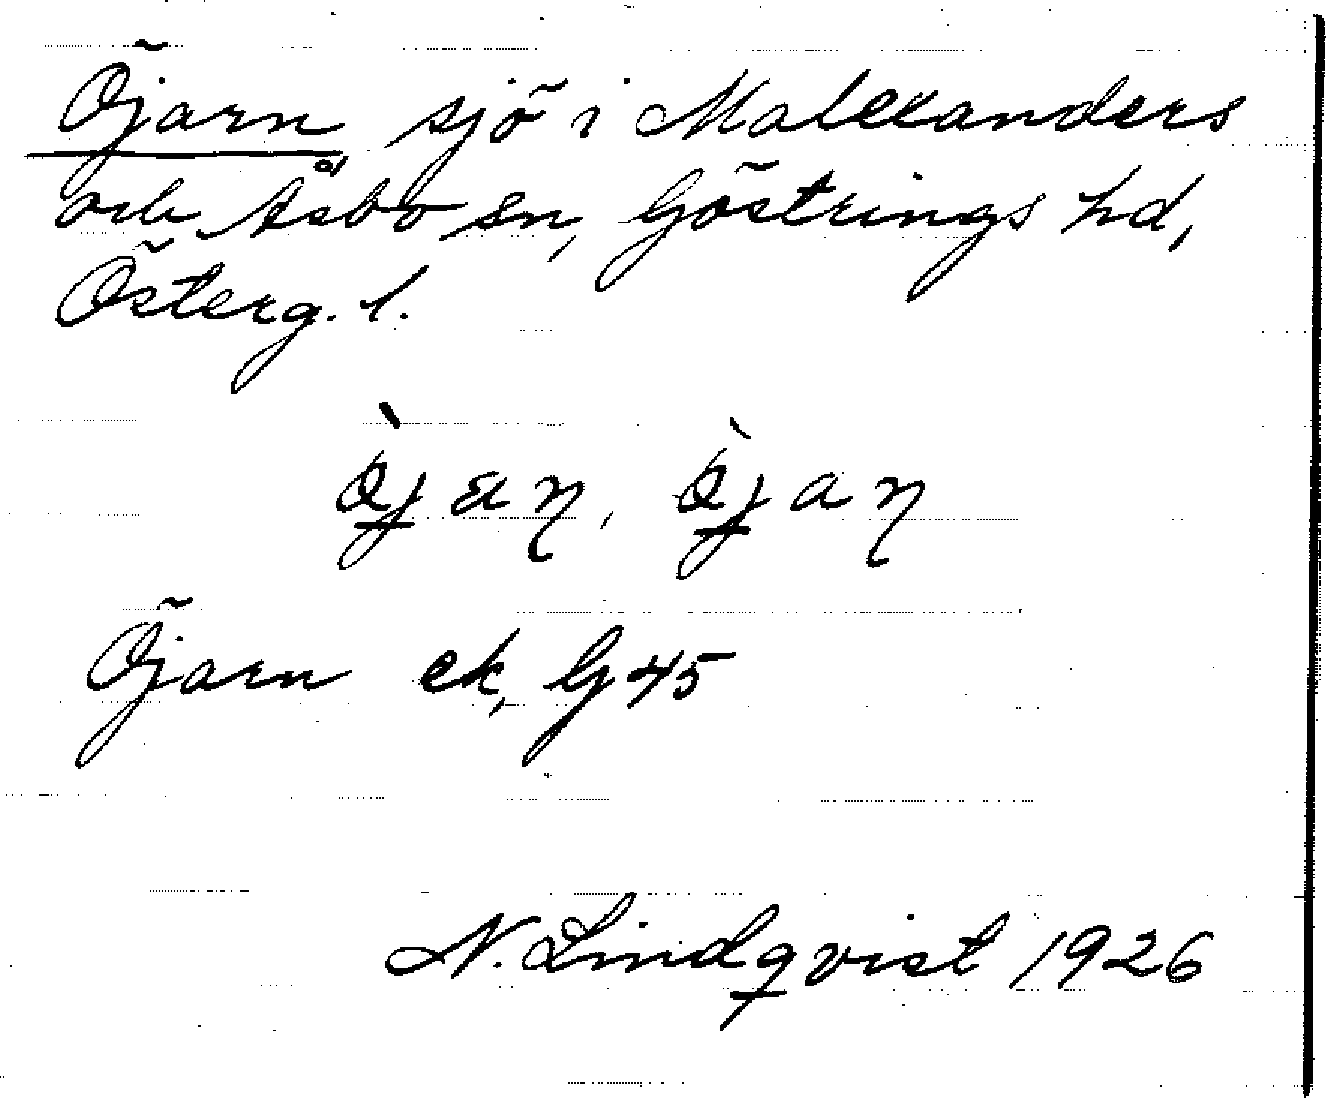 Öjarn sjö i Malexanders
och Åsbo sn, Göstrings hd,
Österg. l.
Öjarn ek, G 45
N. Lindqvist 1926